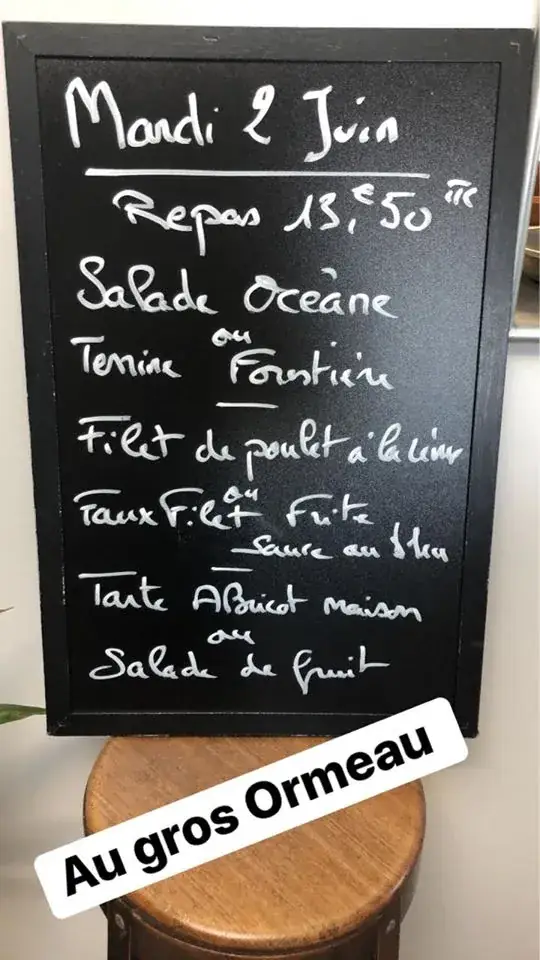 Mardi 2 Juin
Repas 13,€50 TTC
Salade Océane
ou
Terrine Forestière
Filet de poulet à la
ou
Faux Filet Frite
sauce au bleu
Tarte ABricot maison
ou
Salade de fruit
Au gros Ormeau